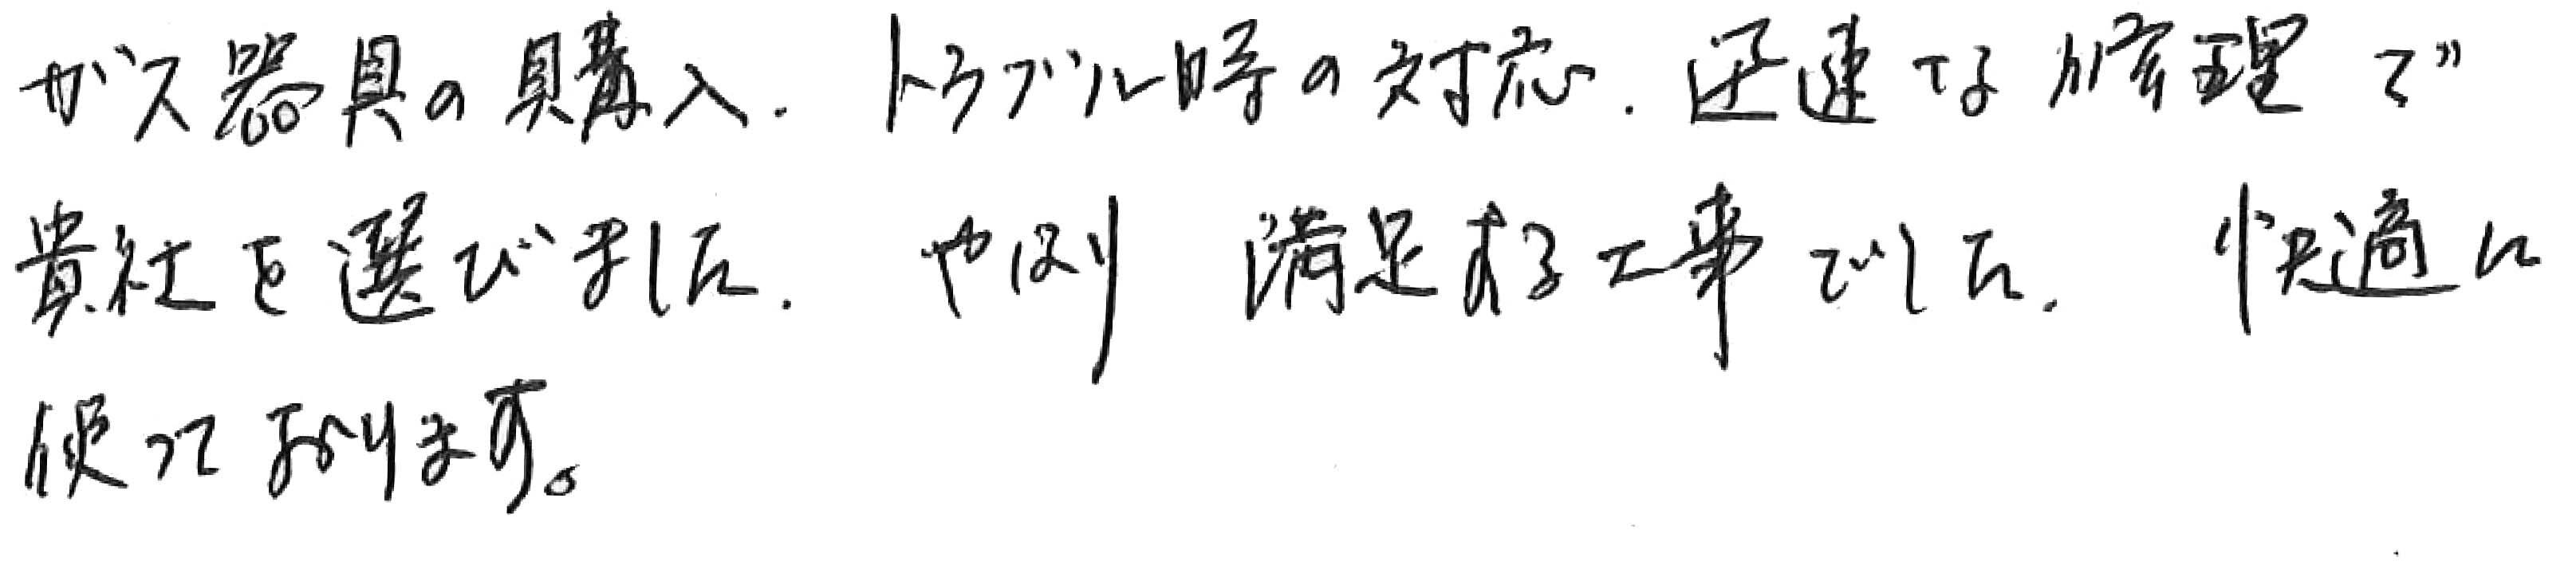 ガス器具の購入.トラブル時の対応.迅速な修理で
貴社を選びました.やはり満足する工事でした.快適に
使っております。